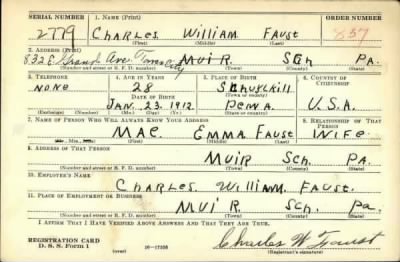 SERIAL NUMBER 1. NAME (Print) ORDER NUMBER
2779 CHARLES WILLIAM FAUST 857
(First) (Middle) (Last)
2. ADDRESS (Print)
832 E Grand Ave. Tower City MUIR. SCH PA.
(Number and street or R. F. D. number) (Town) (County) (State)
3. TELEPHONE 4. AGE IN YEARS 5. PLACE OF BIRTH 6. COUNTRY OF CITIZENSHIP
NONE 28 SCHUYLKILL
DATE OF BIRTH (Town or county)
JAN. 23. 1912. PENNA U.S.A.
(Exchange) (Number) (Mo.) (Day) (Yr.) (State or country)
7. NAME OF PERSON WHO WILL ALWAYS KNOW YOUR ADDRESS 8. RELATIONSHIP OF THAT PERSON
MAE. EMMA FAUST WIFE.
(First) (Middle) (Last)
9. ADDRESS OF THAT PERSON
MUIR SCH. PA.
(Number and street or R. F. D. number) (Town) (County) (State)
10. EMPLOYER'S NAME
CHARLES. WILLIAM. FAUST.
11. PLACE OF EMPLOYMENT OR BUSINESS
MUIR. SCH. Pa.
(Number and street or R. F. D. number) (Town) (County) (State)
I AFFIRM THAT I HAVE VERIFIED ABOVE ANSWERS AND THAT THEY ARE TRUE.
REGISTRATION CARD
D. S. S. Form 1 16—17105 Charles W Faust
(over) (Registrant's signature)